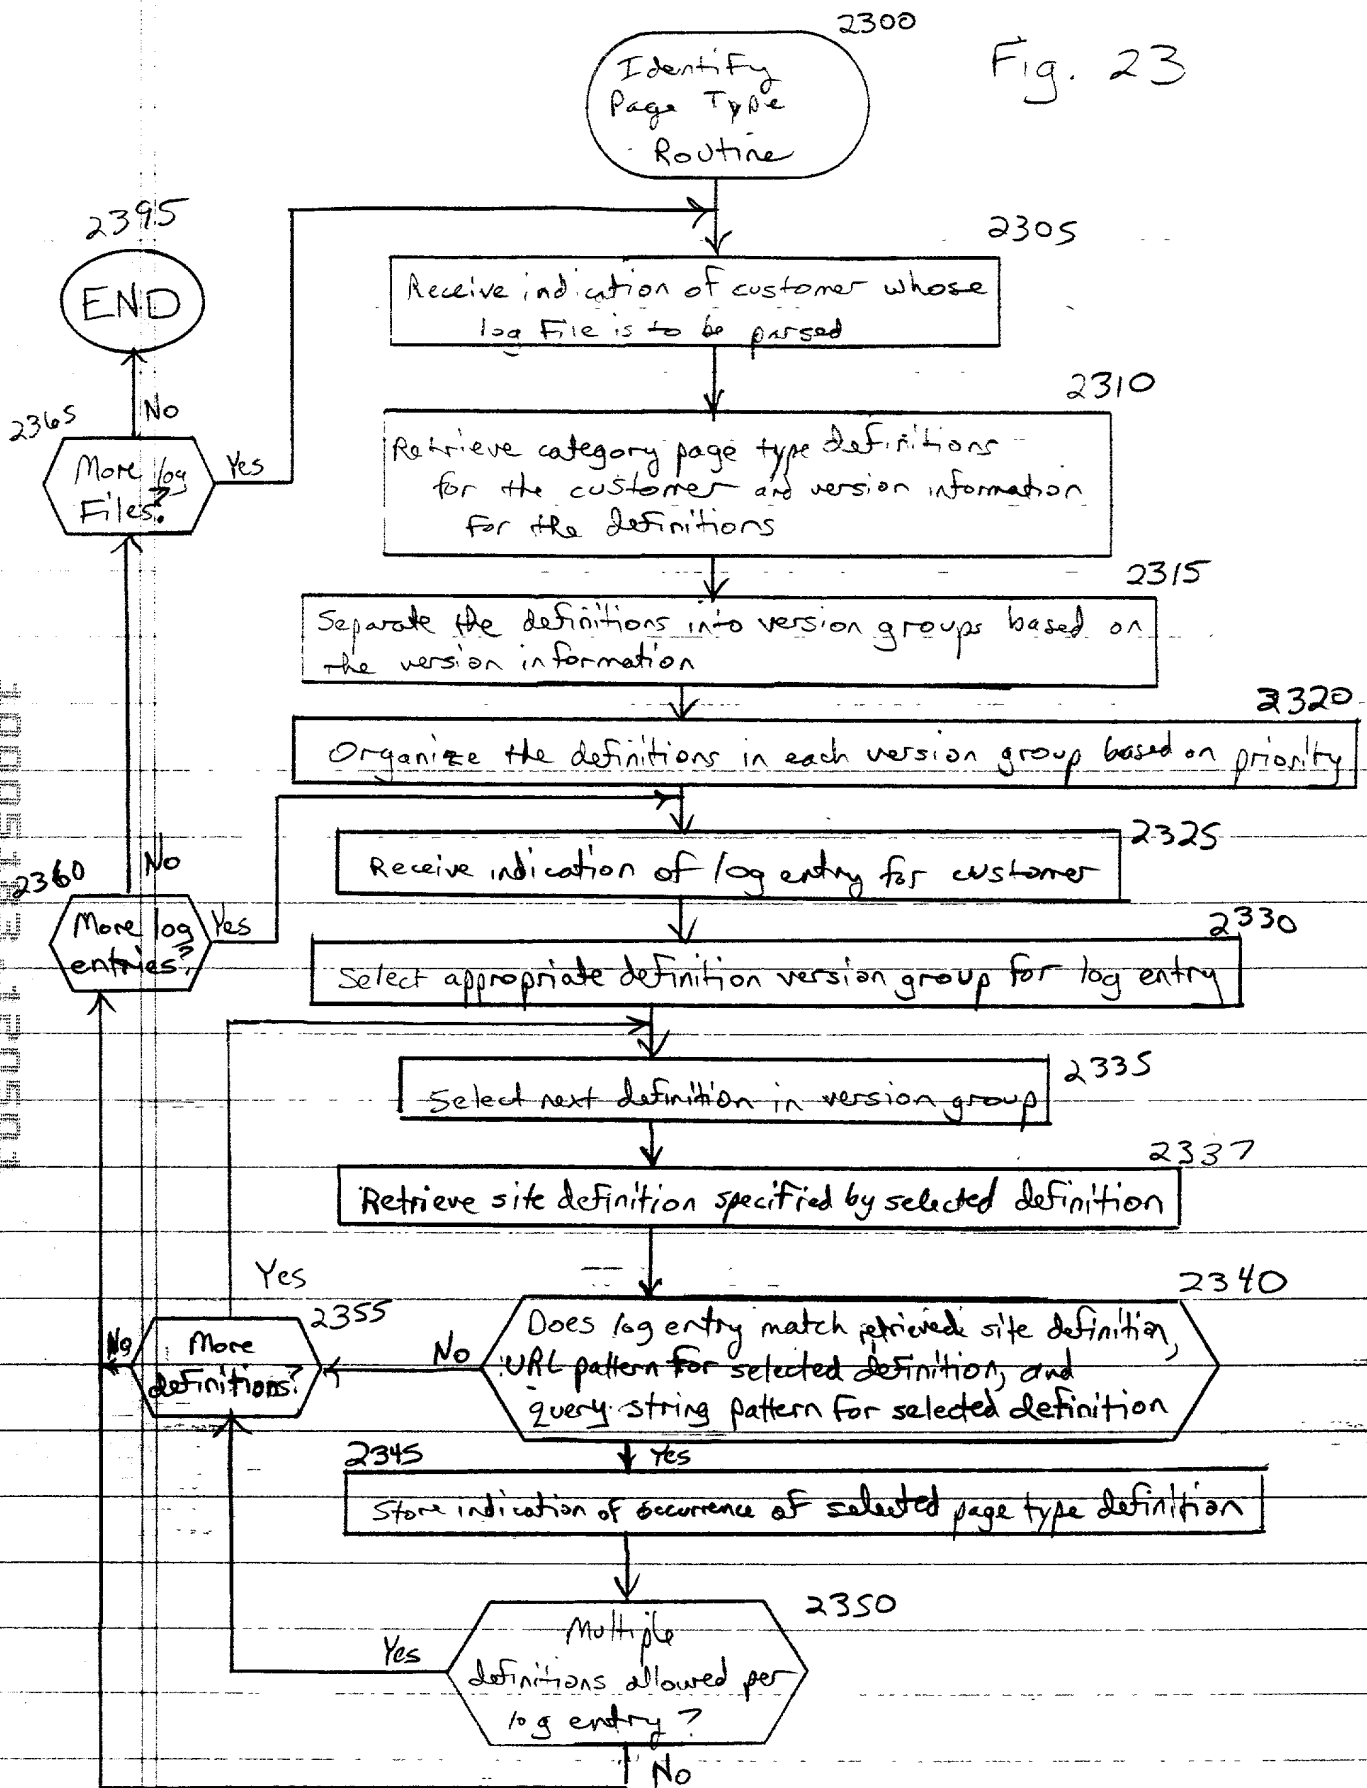 2300
Fig. 23
Identify
Page Type
Routine
2395
END
2305
Receive indication of customer whose
log File is to be parsed
2310
Retrieve category page type definitions
for the customer and version information
for the definitions
2365
No
More log
Files?
Yes
2315
Separate the definitions into version groups based on
the version information
2320
Organize the definitions in each version group based on priority
2325
Receive indication of log entry for customer
2360
No
More log
entries?
Yes
2330
Select appropriate definition version group for log entry
2335
Select next definition in version group
2337
Retrieve site definition specified by selected definition
Yes
2355
No
More
definitions?
No
2340
Does log entry match retrieved site definition,
URL pattern for selected definition, and
query string pattern for selected definition
Yes
2345
Store indication of occurrence of selected page type definition
2350
Multiple
definitions allowed per
log entry?
Yes
No